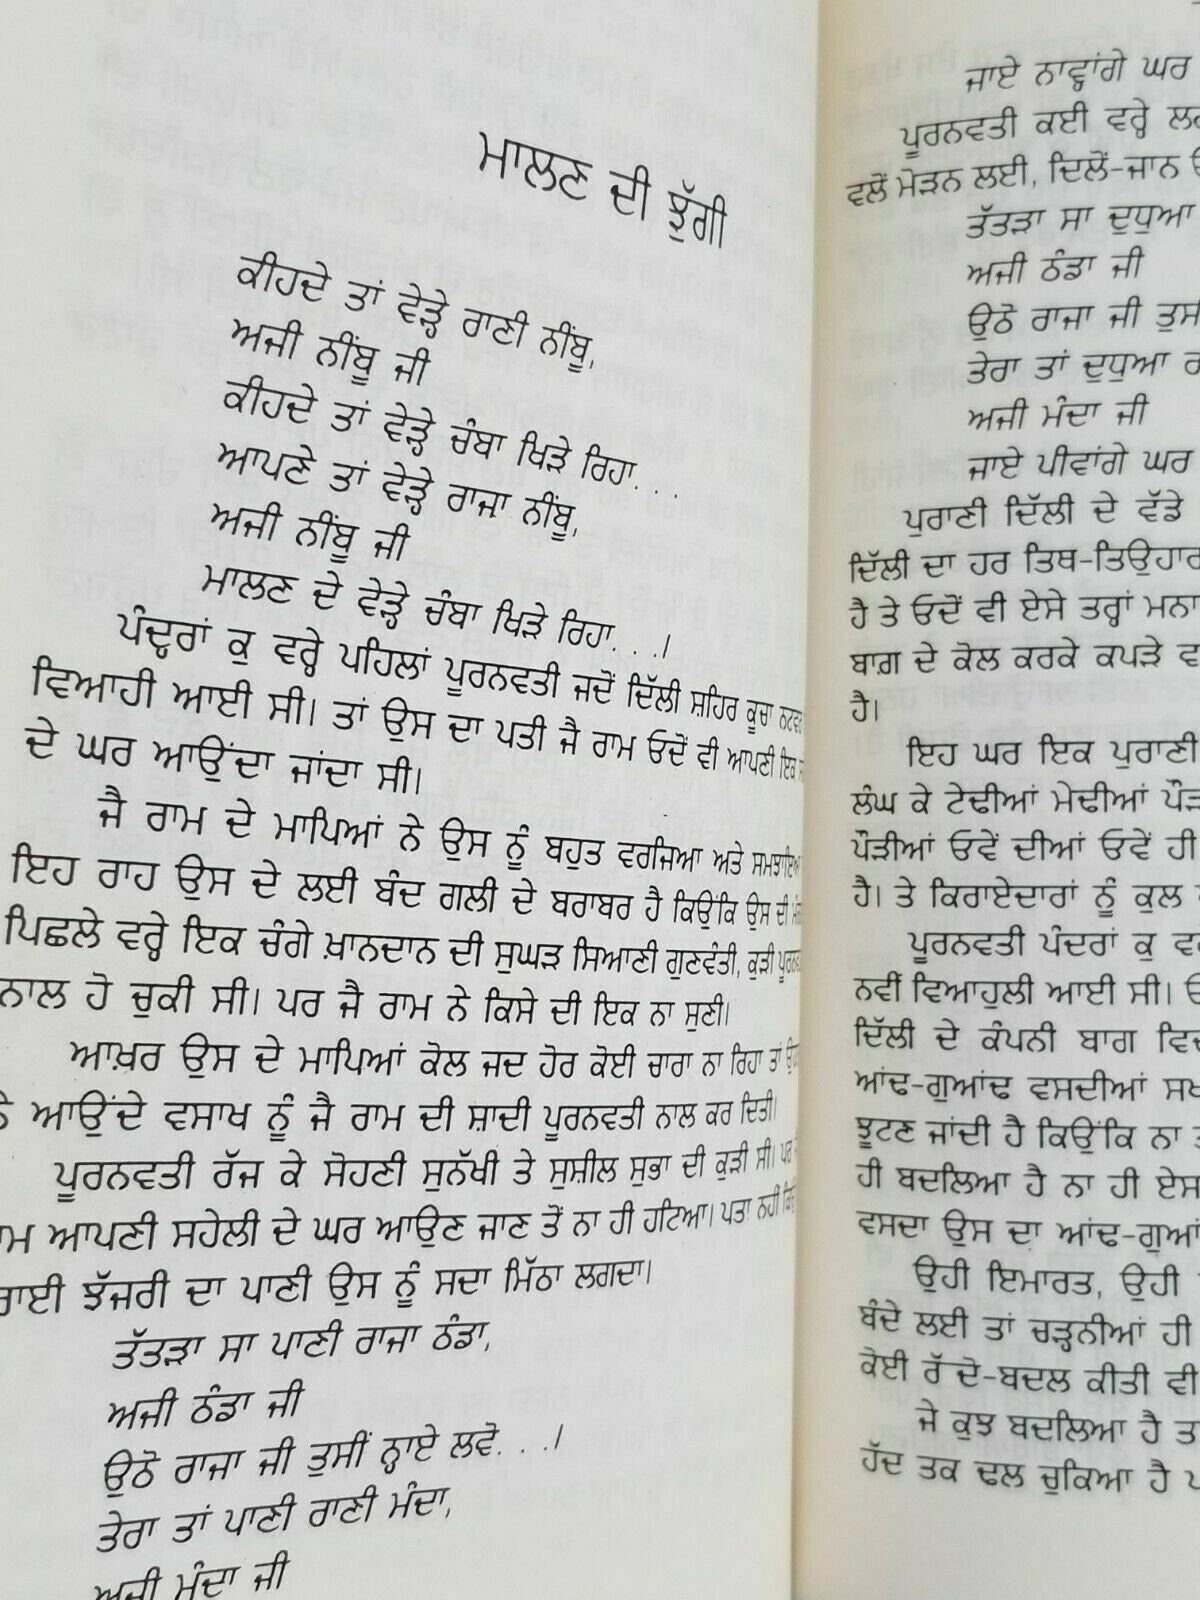 ਮਾਲਣ ਦੀ ਝੁੱਗੀ
ਕੀਹਦੇ ਤਾਂ ਵੇੜ੍ਹੇ ਰਾਣੀ ਨੀਂਬੂ,
ਅਜੀ ਨੀਂਬੂ ਜੀ
ਕੀਹਦੇ ਤਾਂ ਵੇੜ੍ਹੇ ਚੰਬਾ ਖਿੜੇ ਰਿਹਾ. . .
ਆਪਣੇ ਤਾਂ ਵੇੜ੍ਹੇ ਰਾਜਾ ਨੀਂਬੂ,
ਅਜੀ ਨੀਂਬੂ ਜੀ
ਮਾਲਣ ਦੇ ਵੇੜ੍ਹੇ ਚੰਬਾ ਖਿੜੇ ਰਿਹਾ. . .।
ਪੰਦ੍ਹਰਾਂ ਕੁ ਵਰ੍ਹੇ ਪਹਿਲਾਂ ਪੂਰਨਵਤੀ ਜਦੋਂ ਦਿੱਲੀ ਸ਼ਹਿਰ ਕੂਚਾ
ਵਿਆਹੀ ਆਈ ਸੀ। ਤਾਂ ਉਸ ਦਾ ਪਤੀ ਜੈ ਰਾਮ ਓਦੋਂ ਵੀ ਆਪਣੀ ਇਕ
ਦੇ ਘਰ ਆਉਂਦਾ ਜਾਂਦਾ ਸੀ।
ਜੈ ਰਾਮ ਦੇ ਮਾਪਿਆਂ ਨੇ ਉਸ ਨੂੰ ਬਹੁਤ ਵਰਜਿਆ ਅਤੇ
ਇਹ ਰਾਹ ਉਸ ਦੇ ਲਈ ਬੰਦ ਗਲੀ ਦੇ ਬਰਾਬਰ ਹੈ ਕਿਉਂਕਿ ਉਸ ਦੀ
ਪਿਛਲੇ ਵਰ੍ਹੇ ਇਕ ਚੰਗੇ ਖ਼ਾਨਦਾਨ ਦੀ ਸੁਘੜ ਸਿਆਣੀ ਗੁਣਵੰਤੀ, ਕੁੜੀ
ਨਾਲ ਹੋ ਚੁਕੀ ਸੀ। ਪਰ ਜੈ ਰਾਮ ਨੇ ਕਿਸੇ ਦੀ ਇਕ ਨਾ ਸੁਣੀ।
ਆਖ਼ਰ ਉਸ ਦੇ ਮਾਪਿਆਂ ਕੋਲ ਜਦ ਹੋਰ ਕੋਈ ਚਾਰਾ ਨਾ ਰਿਹਾ ਤਾਂ
ਆਉਂਦੇ ਵਸਾਖ ਨੂੰ ਜੈ ਰਾਮ ਦੀ ਸ਼ਾਦੀ ਪੂਰਨਵਤੀ ਨਾਲ ਕਰ ਦਿਤੀ।
ਪੂਰਨਵਤੀ ਰੱਜ ਕੇ ਸੋਹਣੀ ਸੁਨੱਖੀ ਤੇ ਸੁਸ਼ੀਲ ਸੁਭਾ ਦੀ ਕੁੜੀ ਸੀ। ਪਰ
ਆਪਣੀ ਸਹੇਲੀ ਦੇ ਘਰ ਆਉਣ ਜਾਣ ਤੋਂ ਨਾ ਹੀ ਹਟਿਆ। ਪਤਾ ਨਹੀਂ
ਝੱਜਰੀ ਦਾ ਪਾਣੀ ਉਸ ਨੂੰ ਸਦਾ ਮਿੱਠਾ ਲਗਦਾ।
ਤੱਤੜਾ ਸਾ ਪਾਣੀ ਰਾਜਾ ਠੰਡਾ,
ਅਜੀ ਠੰਡਾ ਜੀ
ਉਠੋ ਰਾਜਾ ਜੀ ਤੁਸੀਂ ਨ੍ਹਾਏ ਲਵੋ. . .।
ਤੇਰਾ ਤਾਂ ਪਾਣੀ ਰਾਣੀ ਮੰਦਾ,
ਅਜੀ ਮੰਦਾ ਜੀ
ਜਾਏ ਨਾਵ੍ਹਾਂਗੇ ਘਰ
ਪੂਰਨਵਤੀ ਕਈ ਵਰ੍ਹੇ
ਵਲੋਂ ਮੋੜਨ ਲਈ, ਦਿਲੋਂ-ਜਾਨ
ਤੱਤੜਾ ਸਾ ਦੁਧੁਆ
ਅਜੀ ਠੰਡਾ ਜੀ
ਉਠੋ ਰਾਜਾ ਜੀ
ਤੇਰਾ ਤਾਂ ਦੁਧੁਆ
ਅਜੀ ਮੰਦਾ ਜੀ
ਜਾਏ ਪੀਵਾਂਗੇ ਘਰ
ਪੁਰਾਣੀ ਦਿੱਲੀ ਦੇ ਵੱਡੇ
ਦਿੱਲੀ ਦਾ ਹਰ ਤਿਥ-ਤਿਉਹਾਰ
ਹੈ ਤੇ ਓਦੋਂ ਵੀ ਏਸੇ ਤਰ੍ਹਾਂ
ਬਾਗ਼ ਦੇ ਕੋਲ ਕਰਕੇ ਕਪੜੇ
ਹੈ।
ਇਹ ਘਰ ਇਕ ਪੁਰਾਣੀ
ਲੰਘ ਕੇ ਟੇਢੀਆਂ ਮੇਢੀਆਂ
ਪੌੜੀਆਂ ਓਵੇਂ ਦੀਆਂ ਓਵੇਂ ਹੀ
ਹੈ। ਤੇ ਕਿਰਾਏਦਾਰਾਂ ਨੂੰ ਕੁਲ
ਪੂਰਨਵਤੀ ਪੰਦਰਾਂ ਕੁ
ਨਵੀਂ ਵਿਆਹੁਲੀ ਆਈ ਸੀ।
ਦਿੱਲੀ ਦੇ ਕੰਪਨੀ ਬਾਗ
ਆਂਢ-ਗੁਆਂਢ ਵਸਦੀਆਂ
ਝੂਟਣ ਜਾਂਦੀ ਹੈ ਕਿਉਂਕਿ ਨਾ
ਹੀ ਬਦਲਿਆ ਹੈ ਨਾ ਹੀ ਏਸ
ਵਸਦਾ ਉਸ ਦਾ
ਉਹੀ ਇਮਾਰਤ, ਉਹੀ
ਬੰਦੇ ਲਈ ਤਾਂ ਚੜ੍ਹਨੀਆਂ ਹੀ
ਕੋਈ ਰੱਦੋ-ਬਦਲ ਕੀਤੀ ਵੀ
ਜੇ ਕੁਝ ਬਦਲਿਆ ਹੈ
ਹੱਦ ਤਕ ਢਲ ਚੁਕਿਆ ਹੈ